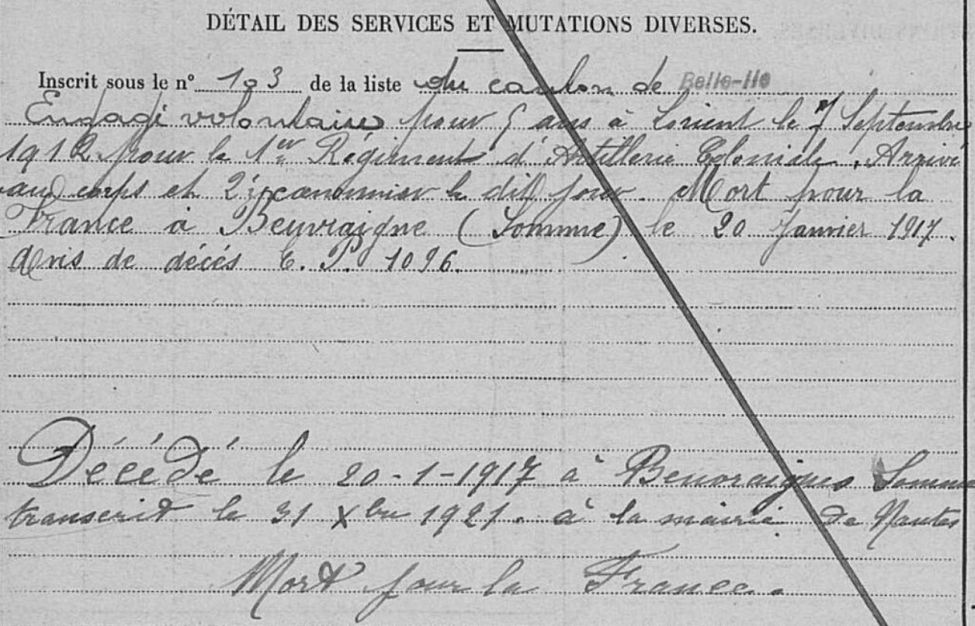 DÉTAIL DES SERVICES ET MUTATIONS DIVERSES.
Inscrit sous le n° 103 de la liste du canton de Belle-Ile
Engagé volontaire pour 5 ans à Lorient le 7 Septembre
1912 pour le 1er Régiment d'Artillerie Coloniale. Arrivé
au corps et 2e canonnier le dit jour. Mort pour la
France à Beuvraigne (Somme) le 20 Janvier 1917.
Avis de décès 1096.
Décédé le 20-1-1917 à Beuvraignes Somme
transcrit le 31 Xbre 1921. à la mairie de Nantes
Mort pour la France.